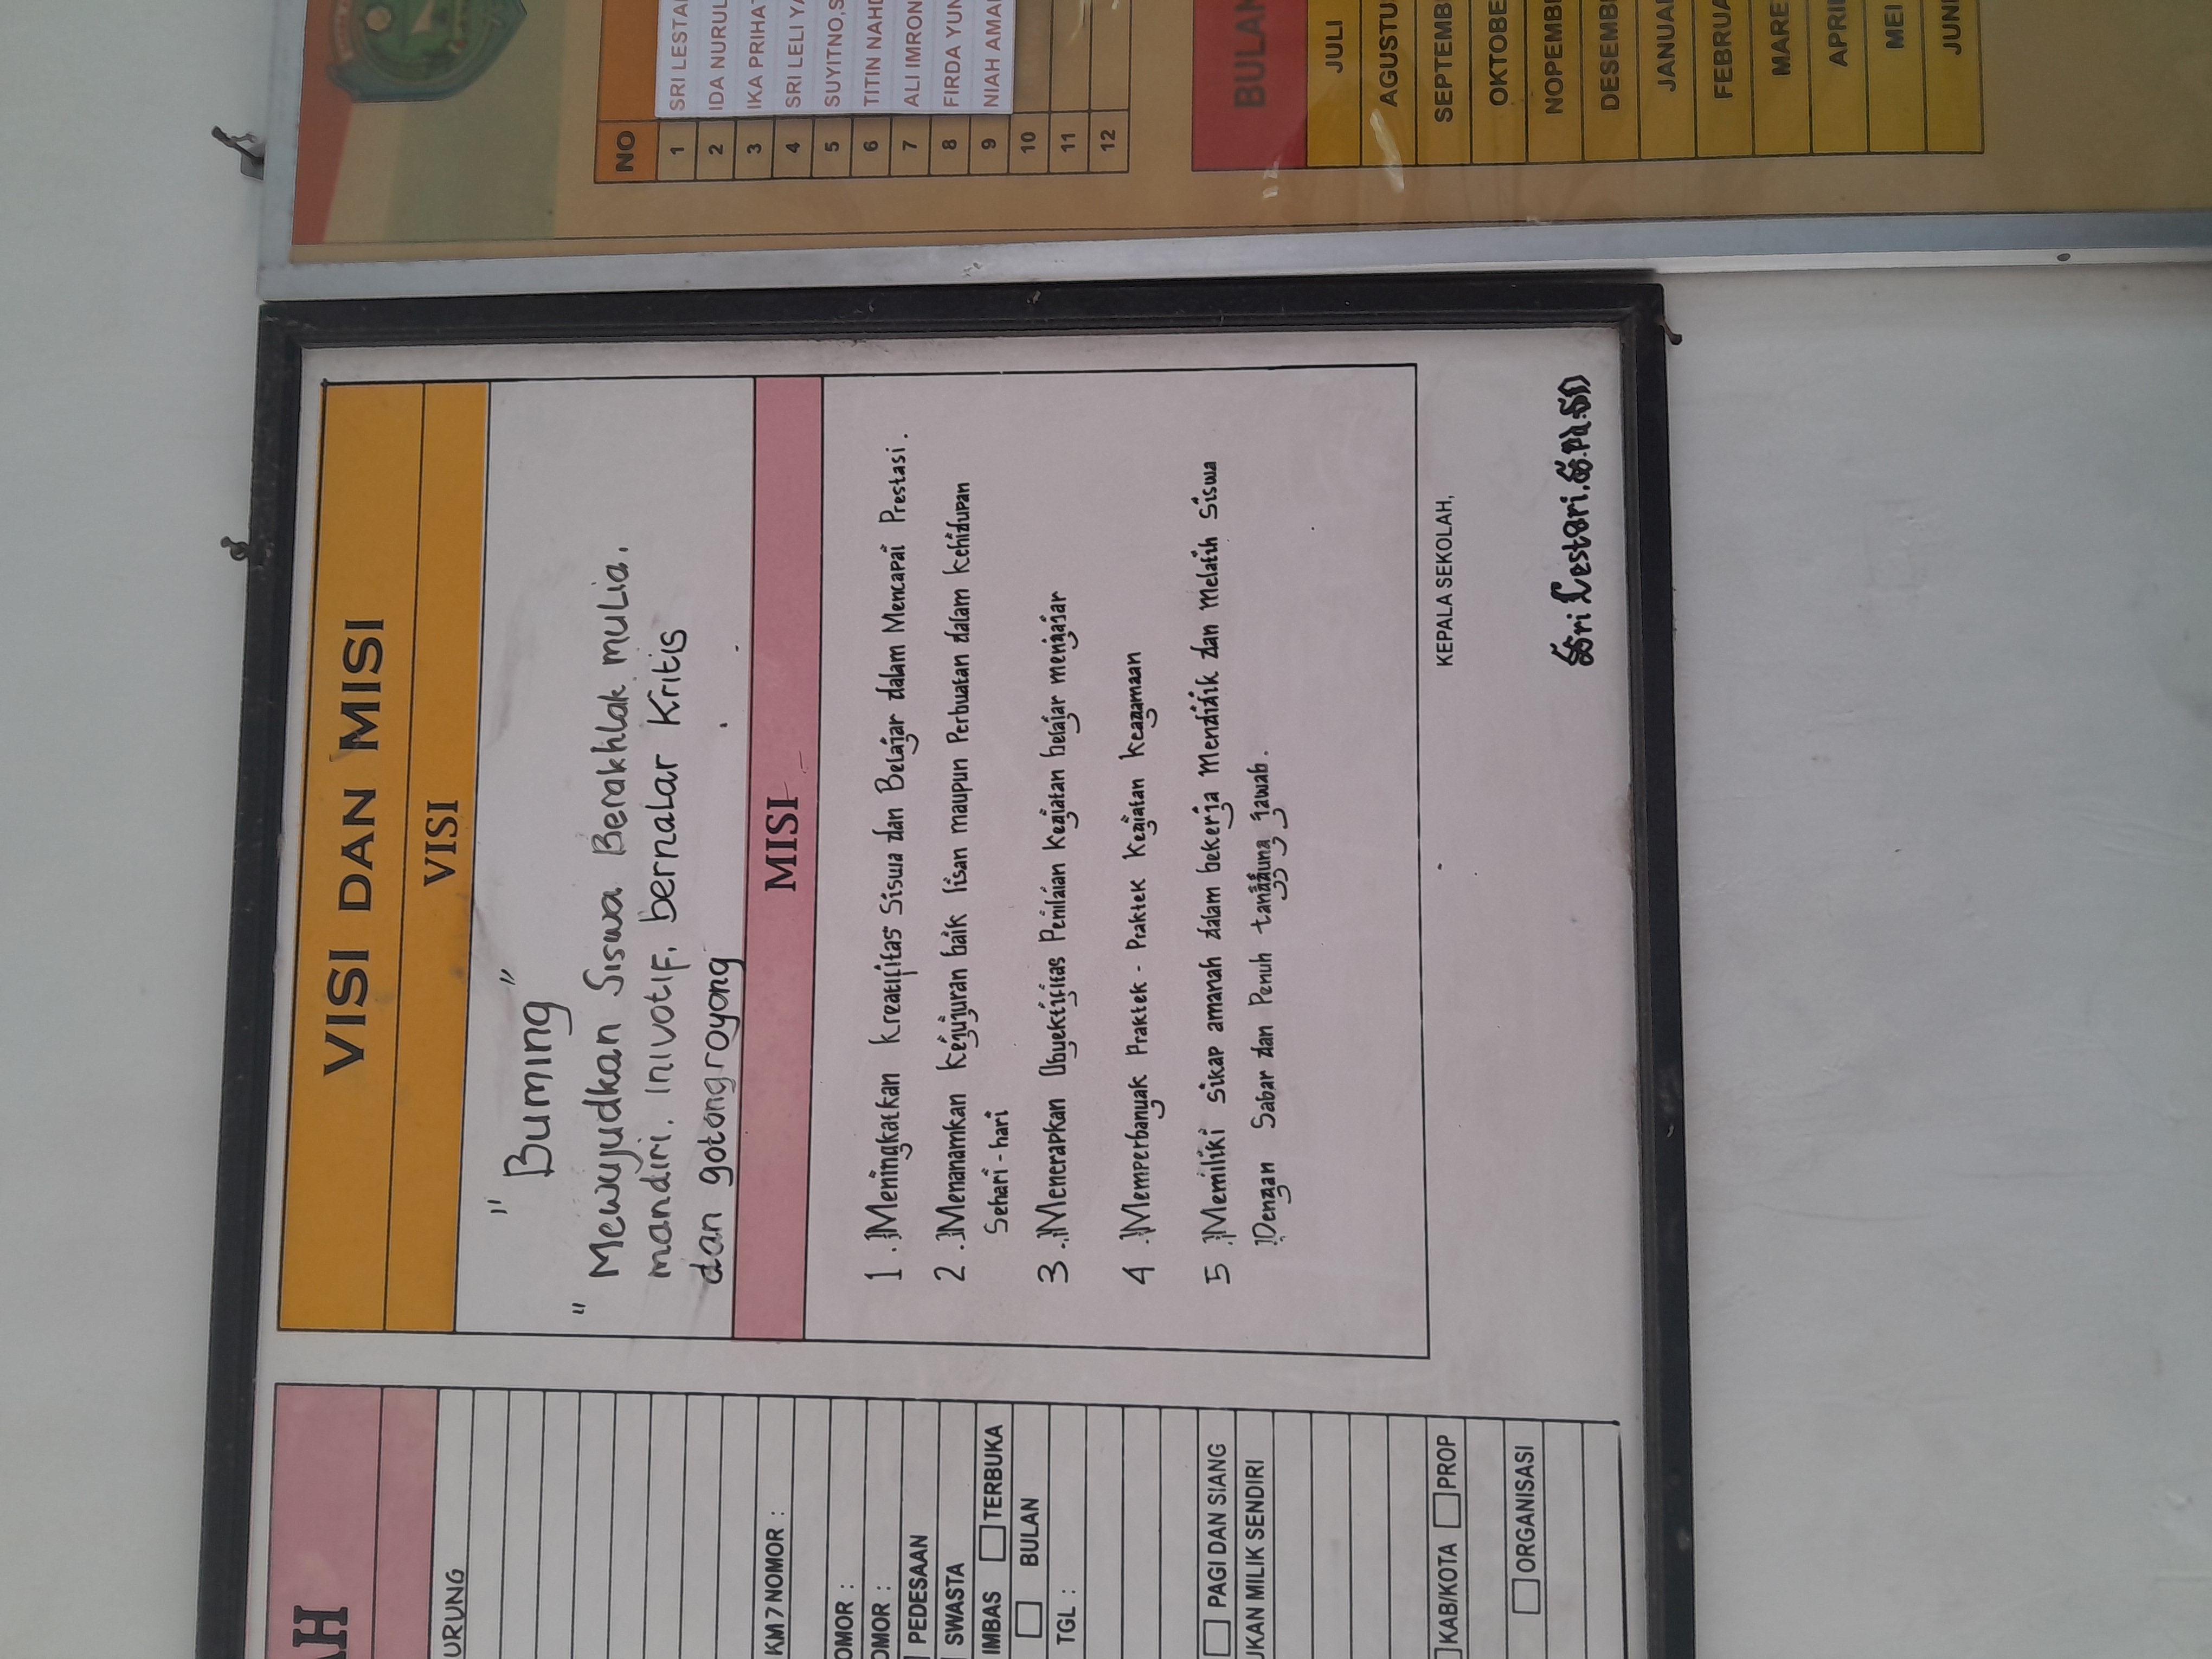 AH
URUNG
KM 7 NOMOR :
OMOR :
OMOR :
PEDESAAN
SWASTA
IMBAS TERBUKA
BULAN
TGL :
PAGI DAN SIANG
UKAN MILIK SENDIRI
KAB/KOTA PROP
ORGANISASI
VISI DAN MISI
VISI
"Buming"
"Mewujudkan Siswa Berakhlak mulia.
mandiri. inivotif, bernalar Kritis
dan gotong royong
MISI
1. Meningkatkan Kreatifitas Siswa dan Belajar dalam Mencapai Prestasi.
2. Menanamkan Kejujuran baik lisan maupun Perbuatan dalam kehidupan
Sehari-hari
3. Menerapkan Obyektifitas Penilaian Kegiatan belajar mengajar
4. Memperbanyak Praktek - Praktek Kegiatan Keagamaan
5. Memiliki sikap amanah dalam bekerja Mendidik dan Melatih Siswa
Dengan Sabar dan Penuh tanggung jawab.
KEPALA SEKOLAH,
Sri Lestari.S.Pd.SD
NO
1 SRI LESTA
2 IDA NURUL
3 IKA PRIHA
4 SRI LELI YA
5 SUYITNO,S
6 TITIN NAHD
7 ALI IMRON
8 FIRDA YUN
9 NIAH AMA
10
11
12
BULAN
JULI
AGUSTU
SEPTEMB
OKTOBE
NOPEMBE
DESEMBE
JANUA
FEBRUA
MARE
APRI
MEI
JUNI